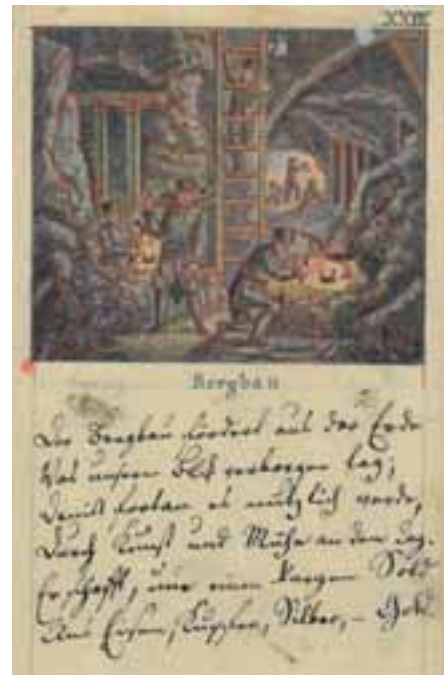 Bergbau
Der Bergbau fördert aus der Erde
Was unserm Blick verborgen lag;
Damit fortan es nützlich werde,
Durch Kunst und Mühe an den Tag.
Er schafft, um einen kargen Sold
Uns Eisen, Kupfer, Silber, – Gold.